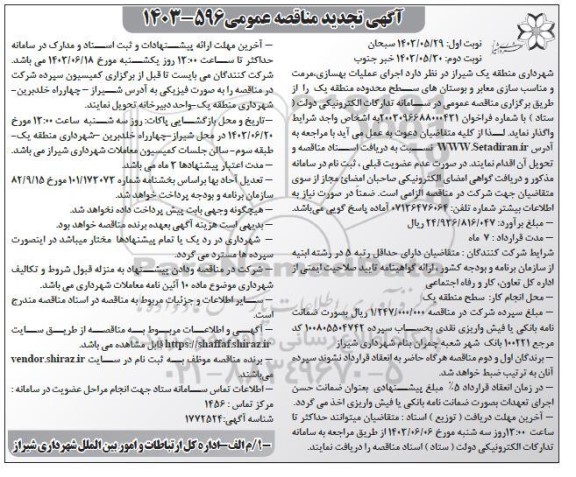 آگهی تجدید مناقصه عمومی ۵۹۶-۱۴۰۳
نوبت اول: ۱۴۰۳/۰۵/۲۹ سبحان
نوبت دوم: ۱۴۰۳/۰۵/۳۰ خبر جنوب
شهرداری منطقه یک شیراز در نظر دارد اجرای عملیات بهسازی،مرمت
و مناسب سازی معابر و بوستان های سطح محدوده منطقه یک را از
طریق برگزاری مناقصه عمومی در سامانه تدارکات الکترونیکی دولت (
ستاد ) با شماره فراخوان ۲۰۰۳۰۹۶۶۸۸۰۰۰۴۳۱به اشخاص واجد شرایط
واگذار نمایند. لذا از کلیه متقاضیان دعوت به عمل می آید با مراجعه به
آدرس WWW.Setadiran.ir نسبت به دریافت اسناد مناقصه و
تحویل آن اقدام نمایند. در صورت عدم عضویت قبلی ، ثبت نام در سامانه
مذکور و دریافت گواهی امضای الکترونیکی صاحبان امضائ مجاز از سوی
متقاضیان جهت شرکت در مناقصه الزامی است. ضمناً در صورت نیاز به
اطلاعات بیشتر شماره تلفن: ۰۷۱۳۶۴۷۶۰۶۴ آماده پاسخ گویی می‌باشد.
– مبلغ برآورد: ۲۴/۹۳۶/۸۱۶/۰۴۷ ریال
– مدت قرارداد : ۷ ماه
شرایط شرکت کنندگان : متقاضیان دارای حداقل رتبه ۵ در رشته ابنیه
از سازمان برنامه و بودجه کشور. ارائه گواهینامه تایید صلاحیت ایمنی از
اداره کل تعاون، کار و رفاه اجتماعی
– محل انجام کار: سطح منطقه یک
– مبلغ سپرده شرکت در مناقصه ۱/۲۴۷/۰۰۰/۰۰۰ ریال بصورت ضمانت
نامه بانکی یا فیش واریزی نقدی بحساب سپرده ۱۰۰۸۰۵۵۰۴۷۴۲ کد
مرجع ۱۰۰۲۲۱ بانک شهر شعبه چمران بنام شهرداری شیراز
– برندگان اول و دوم مناقصه هرگاه حاضر به انعقاد قرارداد نشوند سپرده
آنان به ترتیب ضبط خواهد شد.
– در زمان انعقاد قرارداد ۵٪ مبلغ پیشنهادی بعنوان ضمانت حسن
اجرای تعهدات بصورت ضمانت نامه بانکی یا فیش واریزی اخذ می گردد.
– آخرین مهلت دریافت ( توزیع ) اسناد : متقاضیان میتوانند حداکثر تا
ساعت ۱۳:۰۰روز سه شنبه مورخ ۱۴۰۳/۰۶/۰۶ از طریق مراجعه به سامانه
تدارکات الکترونیکی دولت ( ستاد ) اسناد مناقصه را دریافت نمایند.
– آخرین مهلت ارائه پیشنهادات و ثبت اسناد و مدارک در سامانه
حداکثر تا ساعت ۱۳:۰۰ روز یکشنبه مورخ ۱۴۰۳/۰۶/۱۸ می باشد.
شرکت کنندگان می بایست تا قبل از برگزاری کمیسیون سپرده شرکت
در مناقصه را به صورت فیزیکی به آدرس شیراز –چهارراه خلدبرین-
شهرداری منطقه یک-واحد دبیرخانه تحویل نمایند.
–تاریخ و محل بازگشایی پاکات: روز سه شنبه ساعت ۱۳:۰۰ مورخ
۱۴۰۳/۰۶/۲۰ در محل شیراز-چهارراه خلدبرین –شهرداری منطقه یک-
طبقه سوم-سالن جلسات کمیسیون معاملات شهرداری شیراز می باشد.
– مدت اعتبار پیشنهادها ۳ ماه می باشد.
– تعدیل آحاد بها براساس بخشنامه شماره ۱۰۱/۱۷۳۰۷۳ مورخ ۸۲/۹/۱۵
سازمان برنامه و بودجه پرداخت خواهد شد.
– هیچگونه وجهی بابت پیش پرداخت داده نخواهد شد.
– بدیهی است هزینه آگهی بعهده برنده مناقصه خواهد بود.
– شهرداری در رد یک یا تمام پیشنهادها مختار میباشد در اینصورت
سپرده ها مسترد می گردد.
– شرکت در مناقصه ودادن پیشنهاد به منزله قبول شروط و تکالیف
شهرداری موضوع ماده ۱۰ آئین نامه معاملات شهرداری می باشد.
– سایر اطلاعات و جزئیات مربوط به مناقصه در اسناد مناقصه مندرج
است.
– آگهی و اطلاعات مربوط به مناقصه از طریق سایت
https://shaffaf.shiraz.ir قابل مشاهده می باشد.
– برنده مناقصه موظف به ثبت نام در سایت vendor.shiraz.ir
می‌باشند.
– اطلاعات تماس سامانه ستاد جهت انجام مراحل عضویت در سامانه :
مرکز تماس : ۱۴۵۶
شناسه آگهی:۱۷۷۲۵۲۴
۱/م الف-اداره کل ارتباطات و امور بین الملل شهرداری شیراز